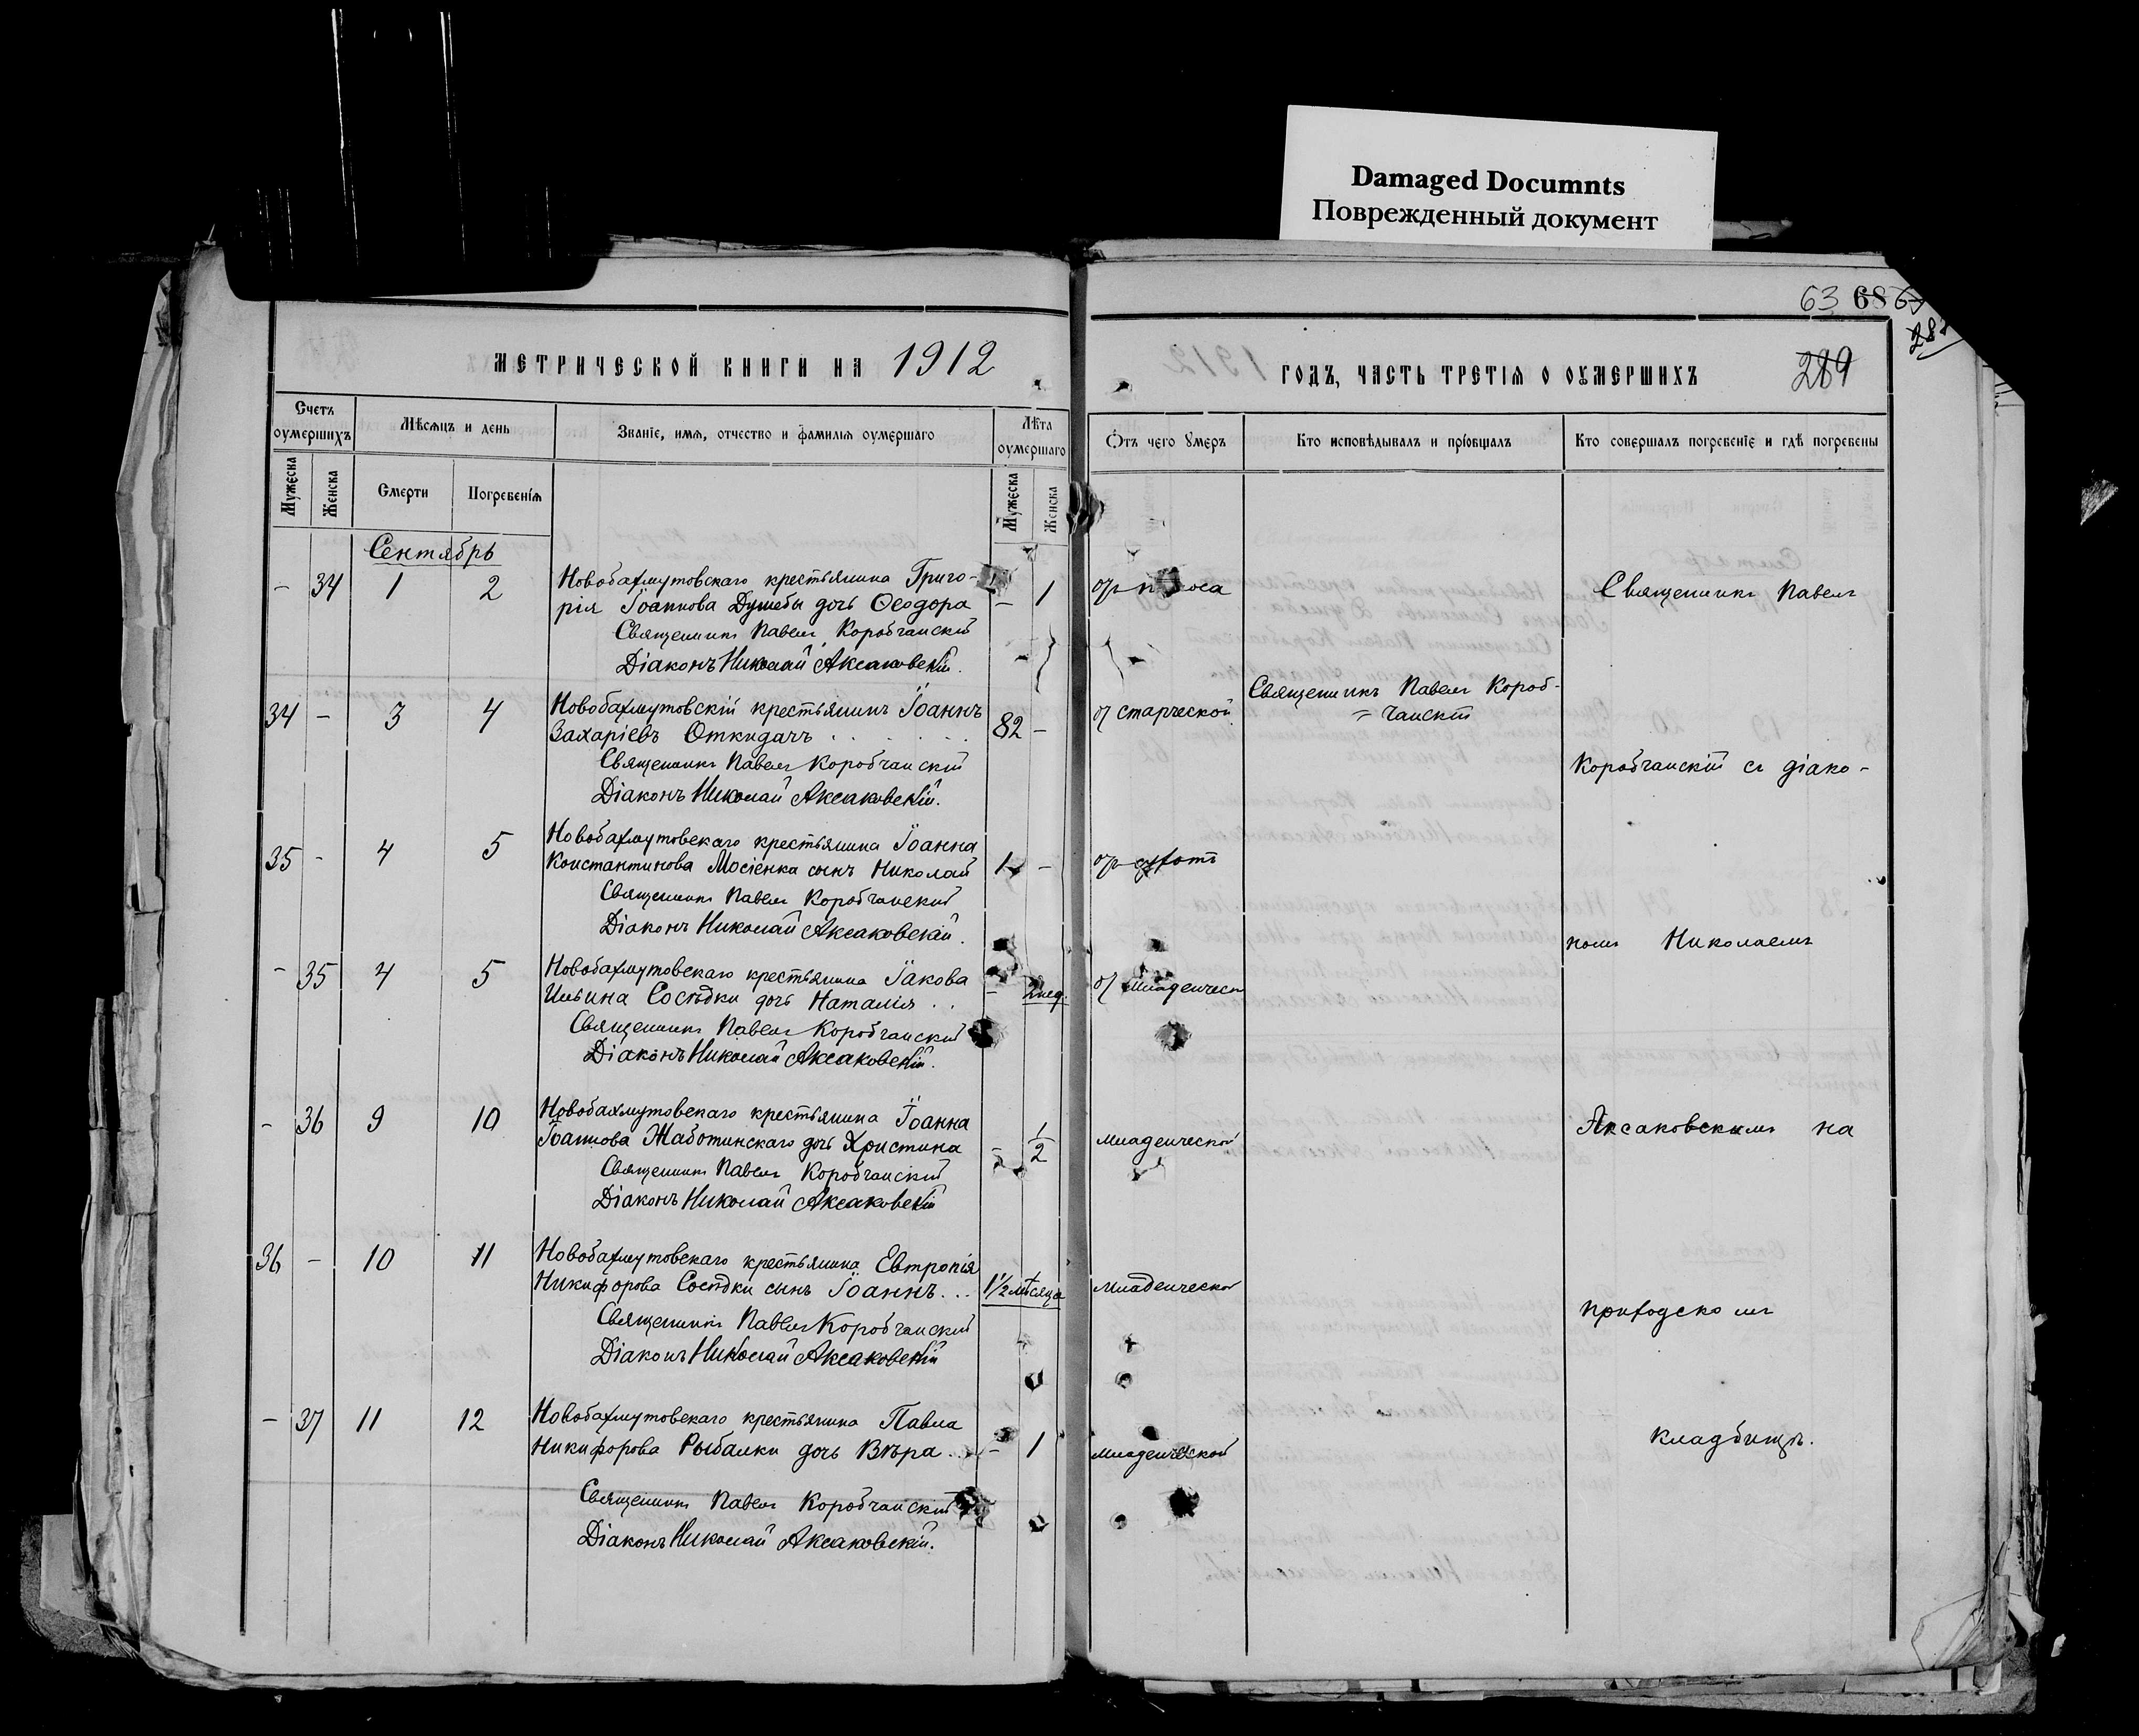 Damaged Documnts
Поврежденный документ
63 68
289
МЕТРИЧЕСКОЙ КНИГИ НА 1912
ГОДЪ, ЧАСТЬ ТРЕТІЯ О ОУМЕРШИХЪ
Счетъ оумершихъ
Мѣсяцъ и день
Званіе, имя, отчество и фамилія оумершаго
Лѣта оумершаго
Отъ чего умеръ
Кто исповѣдывалъ и пріобщалъ
Кто совершалъ погребеніе и гдѣ погребены
Мужеска
Женска
Смерти
Погребенія
Мужеска
Женска
Сентябрь
- 34 1 2 Новобахмутовскаго крестьянина Григо-
рія Іоаннова Душебы дочь Ѳеодора - 1
Священникъ Павелъ Коробчанскій
Діаконъ Николай Аксаковскій.
34 - 3 4 Новобахмутовскій крестьянинъ Іоаннъ
Захаріевъ Откидачъ 82 - от старческой
Священникъ Павелъ Короб-
= чанскій
Священникъ Павелъ Коробчанскій
Діаконъ Николай Аксаковскій.
35 - 4 5 Новобахмутовскаго крестьянина Іоанна
Константинова Мосіенка сынъ Николай 1 -
Священникъ Павелъ Коробчанскій
Діаконъ Николай Аксаковскій.
- 35 4 5 Новобахмутовскаго крестьянина Іакова
Ильина Сосѣдки дочь Наталія . . - 2 нед. от младенческ
Священникъ Павелъ Коробчанскій
Діаконъ Николай Аксаковскій.
- 36 9 10 Новобахмутовскаго крестьянина Іоанна
Іоаннова Жаботинскаго дочь Христина - 1/2 младенческой
Священникъ Павелъ Коробчанскій
Діаконъ Николай Аксаковскій
36 - 10 11 Новобахмутовскаго крестьянина Евтропія
Никифорова Сосѣдки сынъ Іоаннъ. . . 1 1/2 мѣсяца младенческой
Священникъ Павелъ Коробчанскій
Діаконъ Николай Аксаковскій
- 37 11 12 Новобахмутовскаго крестьянина Павла
Никифорова Рыбалки дочь Вѣра . . - 1 младенческой
Священникъ Павелъ Коробчанскій
Діаконъ Николай Аксаковскій.
Священникъ Павелъ
Коробчанскій съ діако-
номъ Николаемъ
Аксаковскимъ на
приходскомъ
кладбищѣ.